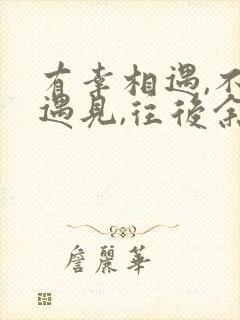 有幸相遇,不
遇见,往後余
詹麗華